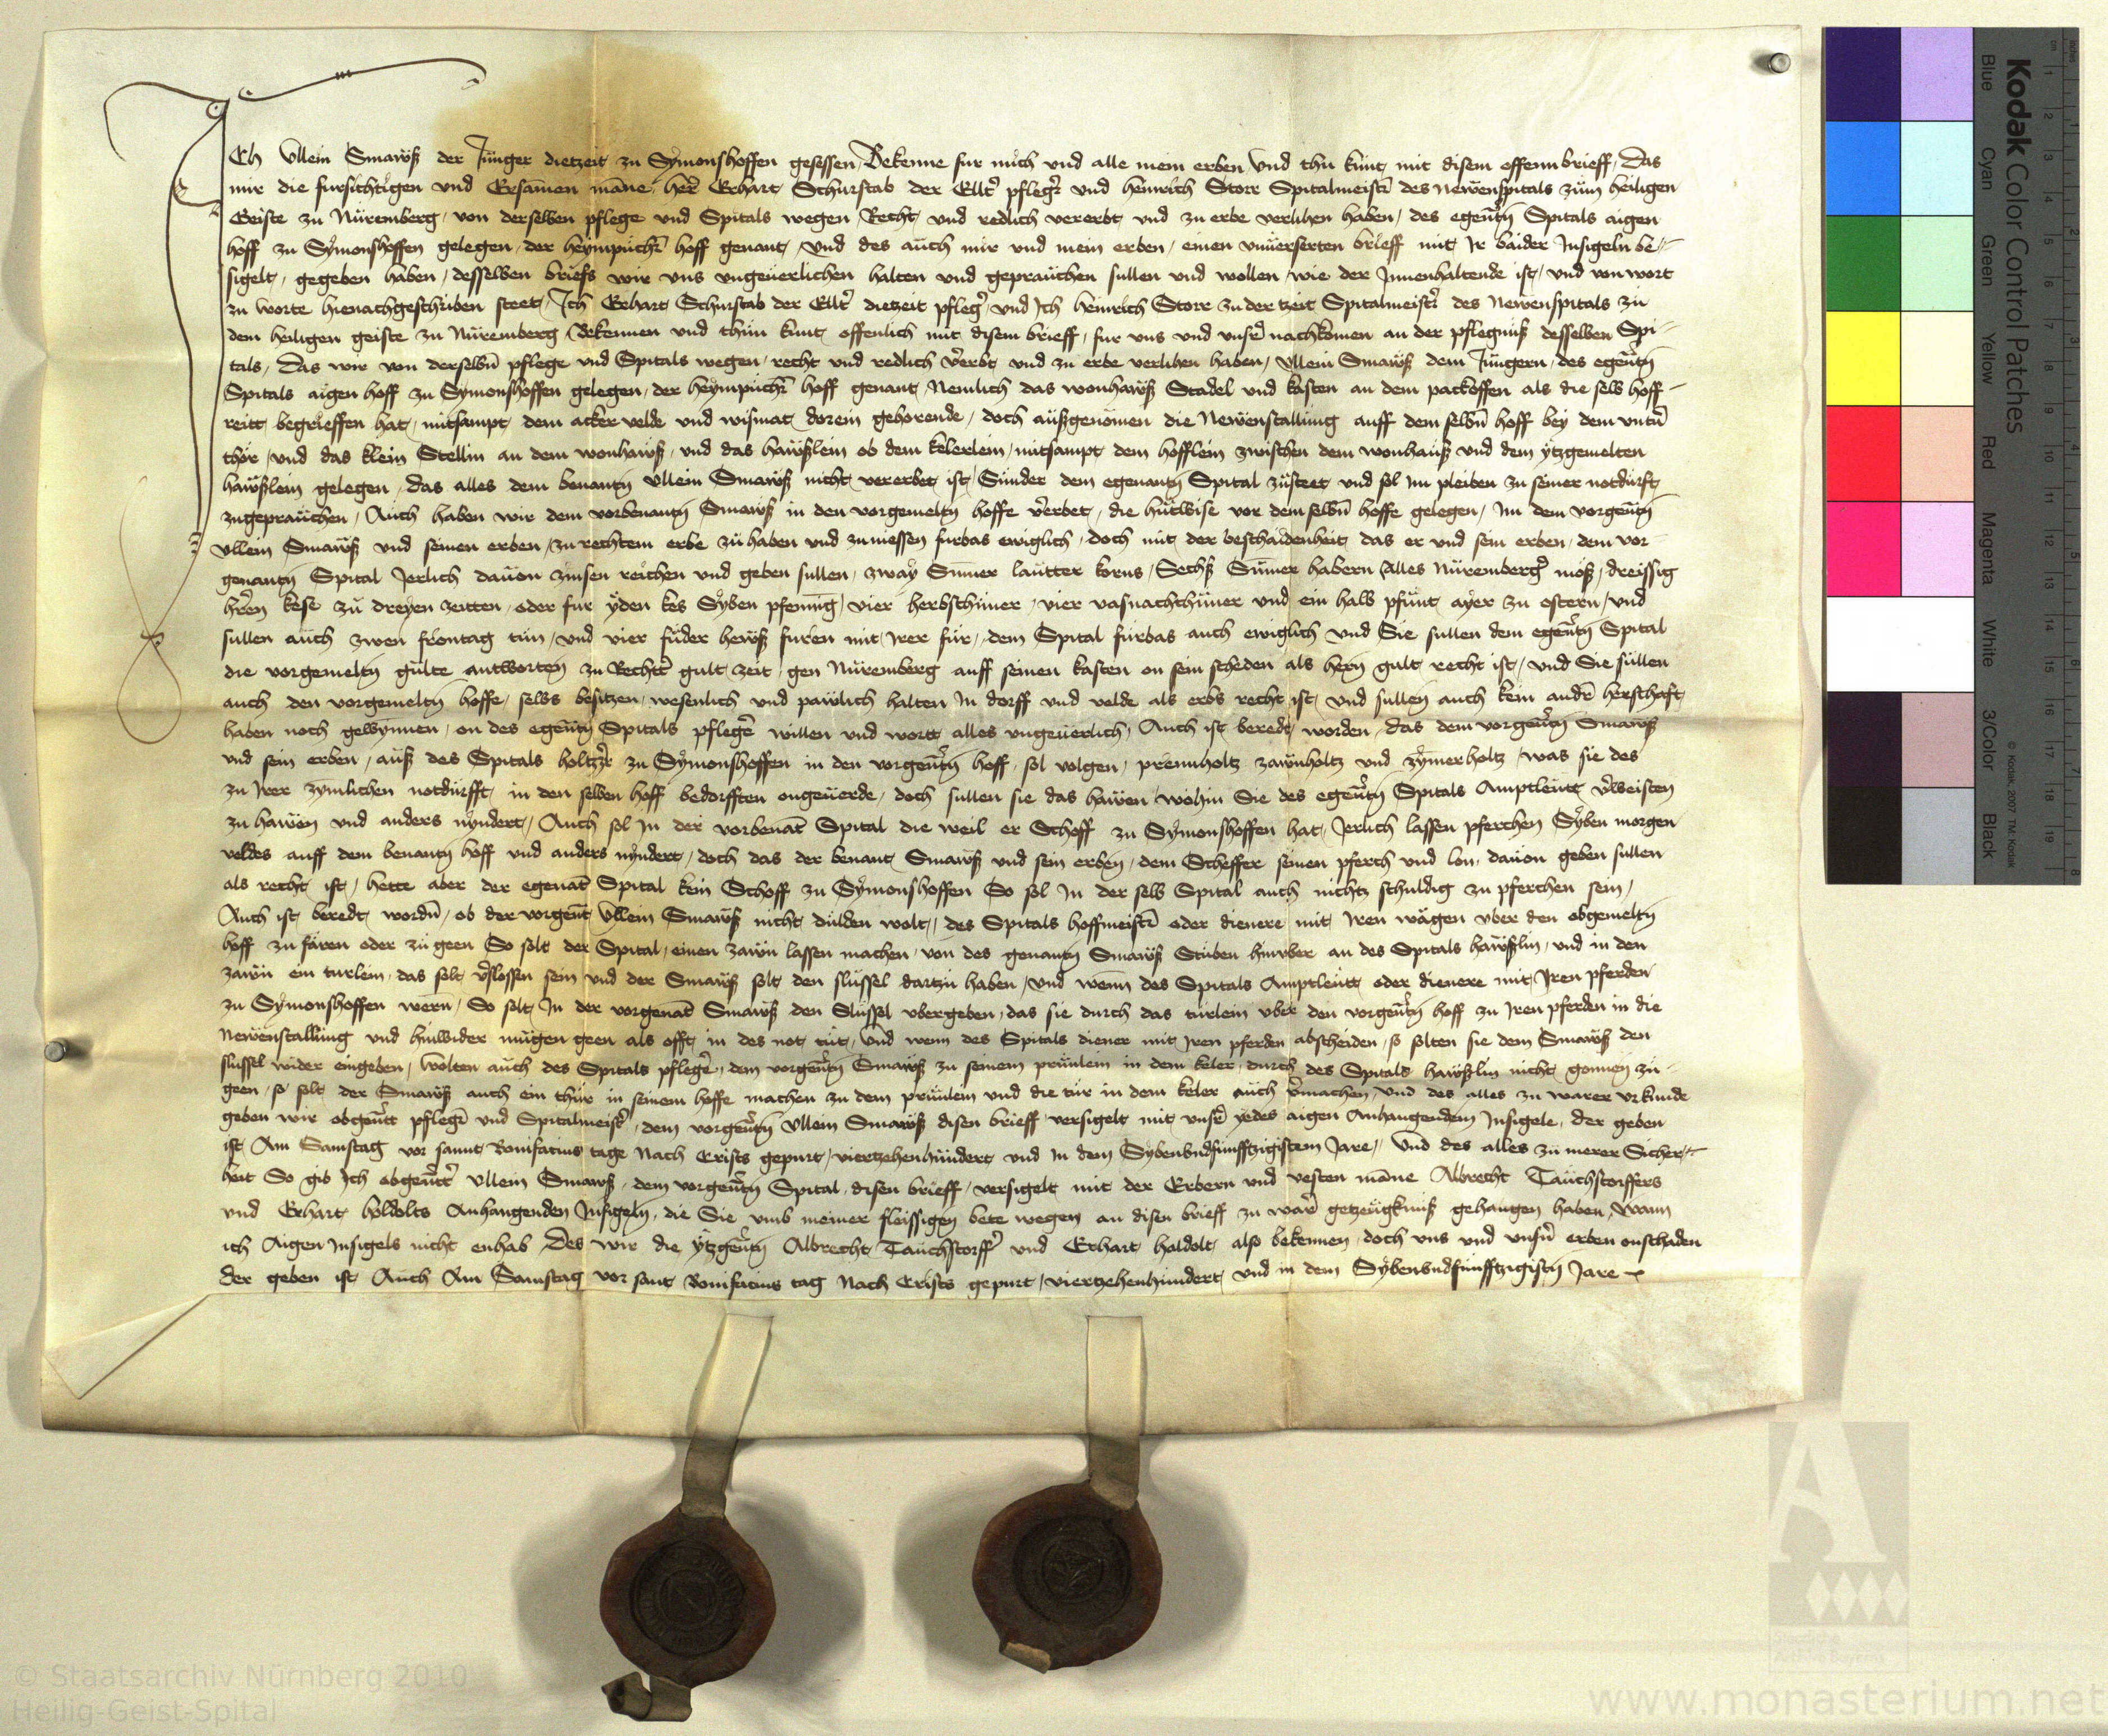 Ich Ullein Smawß der Junger dietzeit zu Sÿmonshoffen gesessen Bekenne fur mich vnd alle mein erben Vnd thu kunt mit disem offenn brieff, Das
mir die fursichtigen vnd Ersamen mane her Erhart Schurstab der Ellter pfleger vnd heinrich Storr Spitalmeister des Newenspitals zum heiligen
Geiste zu Nüremberg, von derselben pflege vnd Spitals wegen Recht vnd redlich vererbt vnd zu erbe verlihen haben, des egenten Spitals aigen
hoff zu Sÿmonshoffen gelegen, der heympucher hoff genant, Vnd des auch mir vnd mein erben, einen vnuerserten brieff mit Ir baider Insigeln be-
sigelt, gegeben haben, desselben briefs wir vns vngeuerlichen halten vnd geprauchen sullen vnd wollen, wie der Innenhaltende ist, vnd von wort
zu worte hienachgeschriben steet, Ich Erhart Schurstab der Ellter dietzeit pfleger vnd Ich heinrich Storr zu der tzeit Spitalmeister des Newenspitals zu
dem heiligen geiste zu Nüremberg Bekennen vnd thun kunt offenlich mit disem brieff, fur vns vnd vnser nachkomen an der pflegnuß desselben Spi-
tals, Das wir von derselben pflege vnd Spitals wegen, recht vnd redlich vererbt vnd zu erbe verlihen haben, Ullein Smawß dem Jungern, des egenten
Spitals aigen hoff zu Symonshoffen gelegen, der heympucher hoff genant, Nemlich das wonhawß Stadel vnd kasten an dem packoffen als die selb hoff-
reitt begrieffen hat, mitsampt dem acker velde vnd wismat dorein gehorende, doch außgenomen die Newenstallung auff dem selben hoff bey dem vntern
thor, vnd das klein Stellin an dem wonhawß, vnd das hawßlein ob dem kelerlein, mitsampt dem hofflein zwischen dem wonhauß vnd dem ytzgemelten
hawßlein gelegen, das alles dem benanten Ullein Smawß nicht vererbet ist, Sunder dem egenanten Spital zusteet vnd sol im pleiben zu seiner notdurft
zugeprauchen, Auch haben wir dem vorbenanten Smawß in den vorgemelten hoffe vererbet, die hutwise vor dem selben hoffe gelegen, Im dem vorgenten
Ullein Smawß vnd seinen erben, zu rechtem erbe zu haben vnd zu niessen furbas ewiglich, doch mit der beschaidenheit, das er vnd sein erben, dem vor-
genanten Spital Jerlich dauon zinsen reichen vnd geben sullen, zwaÿ Sumer lautter korns, Sechs Sumer habern Alles Nüremberger moß, dreissig
herren kese zu dreyen zeitten, oder fur ÿden kes Syben pfennig, vier herbsthüner, vier vasnachthüner vnd ein halb pfunt aÿer zu ostern, vnd
sullen auch zwen frontag tun, vnd vier fuder hewß furen mit Irer fur, dem Spital furbas auch ewiglich vnd Sie sullen dem egenten Spital
die vorgemelten gulte antworten zu Rechter gult zeit, gen Nüremberg auff seinen kasten on sein scheden als heren gult recht ist, vnd Sie sullen
auch den vorgemelten hoffe, selbs besitzen, wesenlich vnd pawlich halten In dorff vnd velde als erbs recht ist, vnd sullen auch kein ander herschaft
haben noch gewynnen, on des egenten Spitals pfleger willen vnd wort alles vngeuerlich, Auch ist beredt worden, das dem vorgenten Smawß
vnd sein erben, auß des Spitals holtzer zu Sÿmonshoffen in den vorgenten hoff, sol volgen, prennholtz zawnholtz vnd zÿmerholtz, was sie des
zu Irer zymlichen notdurfft, in den selben hoff bedorfften ongeuerde, doch sullen sie das hawen wohin Sie des egenten Spitals Amptleut verweisten
zu hawen vnd anders nÿndert, Auch sol In der vorbenant Spital die weil er Schoff zu Sÿmonshoffen hat, Jerlich lassen pferchen Sÿben morgen
veldes auff dem benanten hoff vnd anders nÿndert, doch das der benant Smawß vnd sein erben, dem Scheffer seinen pferch vnd lon, dauon geben sullen
als recht ist, hette aber der egenant Spital kein Schoff zu Sÿmonshoffen So sol In der selb Spital auch nichtz schuldig zu pferchen sein,
Auch ist beredt worden, ob der vorgent Ullein Smawß nicht dulden wolt, des Spitals hoffmeister oder dienere mit Iren wägen vber den obgemelten
hoff zu faren oder zu geen So solt der Spital, einen zawn lassen machen, von des genanten Smawß Stuben hinvber an des Spitals hawßlin, vnd in den
zawn ein turlein, das solt verslossen sein vnd der Smawß solt den slussel dartzu haben, vnd wenn des Spitals Amptleut oder dienere mit Iren pferden
zu Sÿmonshoffen wern, So solt In der vorgenant Smawß den Slussel vbergeben, das sie durch das turlein vber den vorgenten hoff zu Iren pferden in die
Newenstallung vnd hinwider mugen geen als offt in des not tut, vnd wenn des Spitals diener mit Iren pferden abscheiden, so solten sie dem Smawß den
slussel wider eingeben, Wolten auch des Spitals pfleger, dem vorgenten Smawß zu seinem prünlein in dem keler, durch des Spitals hawßlin nicht gonnen zu-
geen, so solt der Smawß auch ein thur in seinem hoffe machen zu dem prünlein vnd die tur in dem keler auch vermachen, Vnd des alles zu warer vrkunde
geben wir obgent pfleger vnd Spitalmeister, dem vorgenten Ullein Smawß disen brieff versigelt mit vnser ÿedes aigen Anhangendem Insigele, der geben
ist Am Samstag vor sannt Bonifacius tage Nach Cristi gepurt, viertzehenhundert vnd In dem Sybenvndfunfftzigistem Jare, Vnd des alles zu merer Sicher-
heit So gib Ich obgenter Ullein Smawß, dem vorgenten Spital, disen brieff, versigelt mit der Erbern vnd vesten mane Albrecht Tauchstorffers
vnd Erhart holdolts Anhangenden Insigeln, die Sie vmb meiner fleissigen bete wegen an disen brieff zu warer getzeugknuß gehangen haben, Wann
ich Aigen Insigels nicht enhab Des wir die ÿtzgenten Albrecht Tauchstorffer vnd Erhart haldolt, also bekennen, doch vns vnd vnsern erben onschaden
der geben ist Auch Am Samstag vor sant Bonifacius tag Nach Cristi gepurt, viertzehenhundert, vnd in dem Sybenvndfunfftzigisten Jare
Kodak Color Control Patches
Blue Cyan Green Yellow Red Magenta White 3/Color Black
© Kodak 2007 TM: Kodak
© Staatsarchiv Nürnberg 2010
Heilig-Geist-Spital
www.monasterium.net